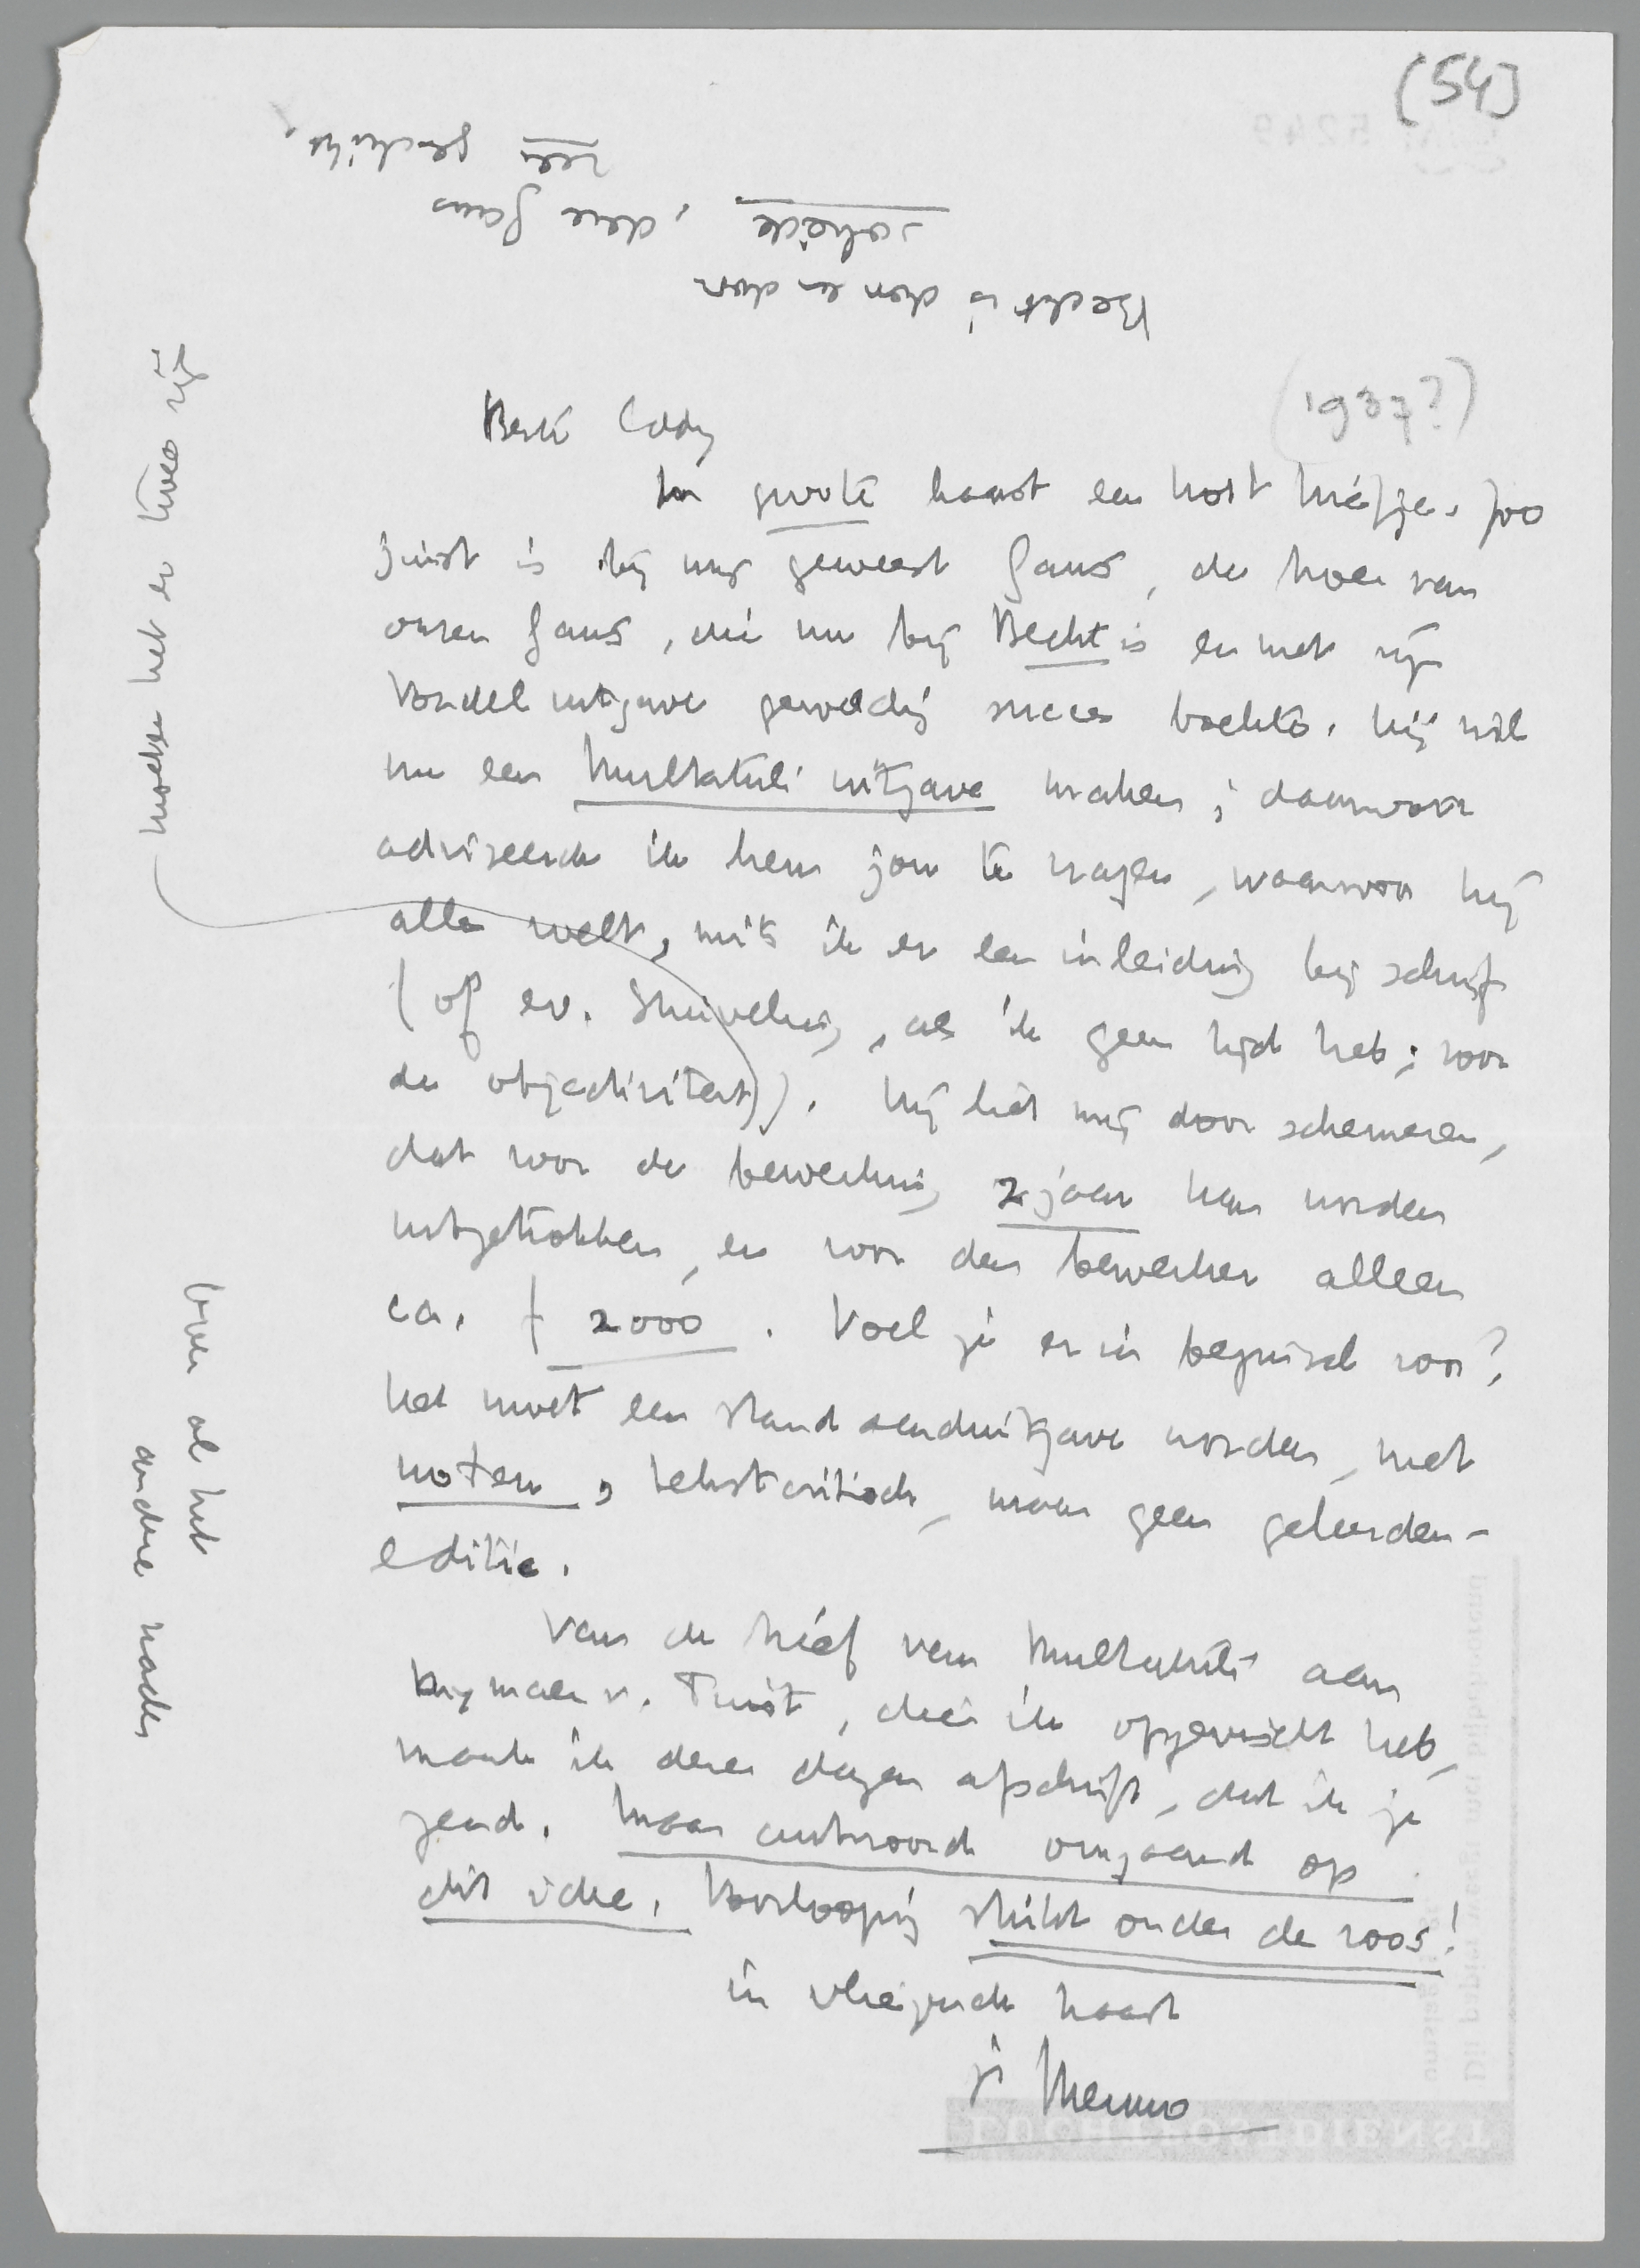 (54)
(1937?)
Beste Eddy
In groote haast een kort briefje. Zoo
juist is bij mij geweest Gans, de broer van
onzen Gans, die nu bij Becht is en met zijn
Vondel uitgave geweldig succes boekte. Hij wil
nu een Multatuli uitgave maken; daarvoor
adviseerde ik hem jou te vragen, waarvoor hij
alles voelt, mits ik er een inleiding bij schrijf
(of ev. Stuiveling, als ik geen tijd heb; voor
de objectiviteit)). Hij liet mij door schemeren,
dat voor de bewerking 2 jaar kan worden
uitgetrokken, en voor den bewerker alleen
ca. f 2000. Voel je er in beginsel voor?
Het moet een standaarduitgave worden, met
noten, tekstcritisch, maar geen geleerden-
editie.
Van de brief van Multatuli aan
Duymaer v. Twist, dien ik opgevischt heb,
maak ik dezer dagen afschrift, dat ik je
zend. Maar antwoord omgaand op
dit idee. Voorloopig strikt onder de roos!
in vliegende haast
je Menno
Becht is door en door
solide, deze Gans
zeer geschikt.
moeten het er twee zijn
boven al het
andere nader
LUCHTPOSTDIENST